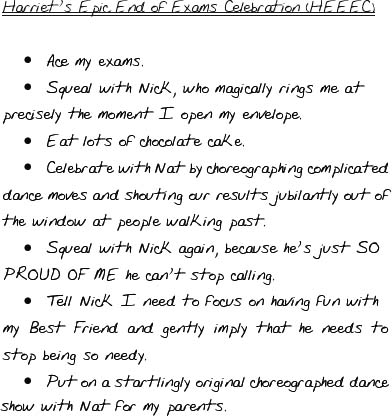 Harriet's Epic End of Exams Celebration (HEEEC)
• Ace my exams.
• Squeal with Nick, who magically rings me at
precisely the moment I open my envelope.
• Eat lots of chocolate cake.
• Celebrate with Nat by choreographing complicated
dance moves and shouting our results jubilantly out of
the window at people walking past.
• Squeal with Nick again, because he's just SO
PROUD OF ME he can't stop calling.
• Tell Nick I need to focus on having fun with
my Best Friend and gently imply that he needs to
stop being so needy.
• Put on a startlingly original choreographed dance
show with Nat for my parents.